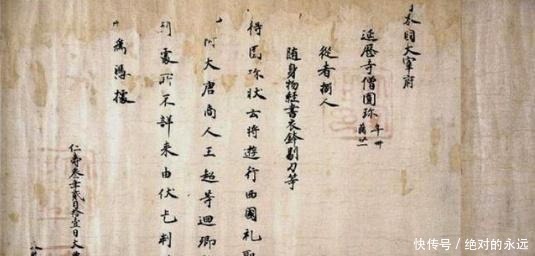 本國大宰府
延曆寺僧圓珍 年卌 臈廿一
從者捌人
随身物經書衣鉢剔刀等
得圓珍狀云將遊行西國礼聖
大唐商人王超等迴鄉
到處所不詳来由伏乞判
為憑據
仁壽叁年貳月拾壹日大
快传号／绝对的永远